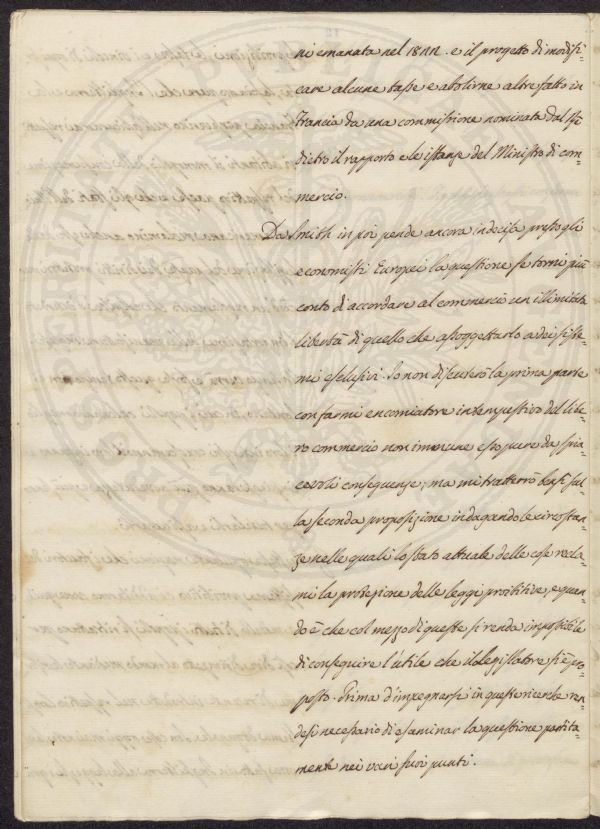 ni emanata nel 18 e il progetto di modifi=
care alcune tasse e abolirne altre fatto in
Francia da una commissione nominata dal Rè
dietro il rapporto e le istanze del Ministro di com=
mercio.
Da Smith in poi pende ancora indecisa presso gli
economisti Europei la questione se torni più
conto di accordare al commercio un illimitata
libertà di quello che assoggettarlo a dei siste=
mi esclusivi. Io non discuterò la prima parte
con farmi encomiatore intempestivo del libe=
ro commercio non immune esso pure da spia=
cevoli conseguenze; ma mi tratterrò bensì sul=
la seconda proposizione indagando le circostan=
ze nelle quali lo stato attuale delle cose recla=
mi la protezione delle leggi proibitive, e quan=
do è che col mezzo di queste si renda impossibile
di conseguire l'utile che il Legislatore si è pro=
posto. Prima d'impegnarsi in queste ricerche ren=
desi necessario di esaminar la questione partita=
mente nei vari suoi punti.